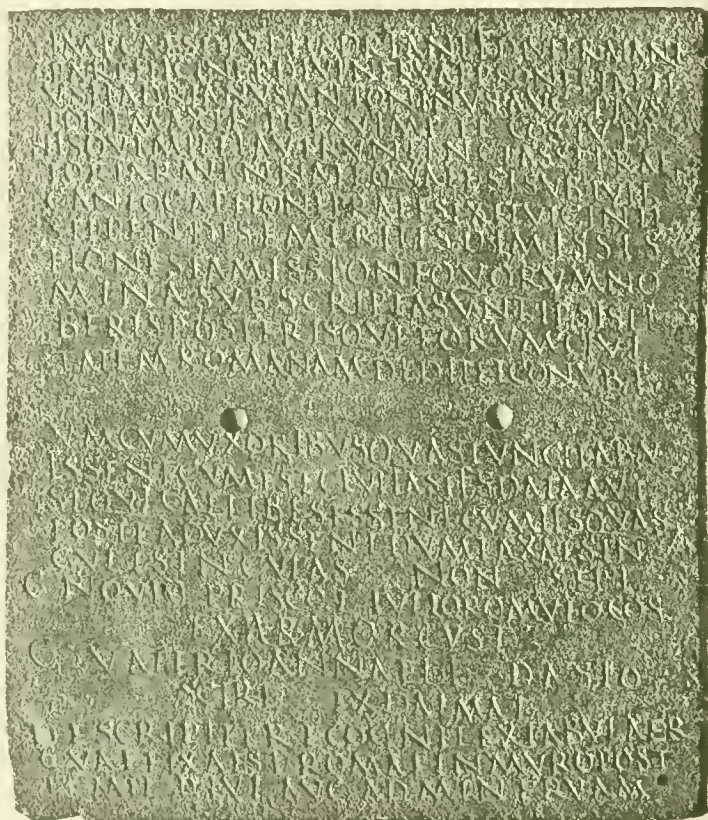 IMP CAES DIVI HADRIANI F DIVI TRAIANI
PARTHICI NEP DIVI NERVAE PRONEP T AEL
VS HADRIANVS ANTONINVS AVG PIVS
PONT MAX TR POT XV IMP II COS IIII PP
IIS QVI MILITAVERVNT IN CLASSE PRAE
TORIA QVAE EST SVB
CAPITONE PRAEF SEX ET VIGINTI
STIPENDIIS EMERITIS DIMISSIS
HONESTA MISSIONE QVORVM NO
MINA SVBSCRIPTA SVNT IPSIS LI
BERIS POSTERISQVE EORVM CIVI
TATEM ROMANAM DEDIT ET CONVBI
VM CVM VXORIBVS QVAS TVNC HABV
ISSENT CVM EST CIVITAS IIS DATA AVT
SI QVI CAELIBES ESSENT CVM IIS QVAS
POSTEA DVXISSENT DVMTAXAT SIN
GVLI SINGVLAS NON SEPT
C NOVIO PRISCO L IVLIO ROMVLO COS
EX
C VALERIO ANNAEI F DASIO
SCIRI EX DALMAT
DESCRIPT ET RECOGNIT EX TABVLA AER
QVAE FIXA EST ROMAE IN MVRO POST
TEMPL DIVI AVG AD MINERVAM